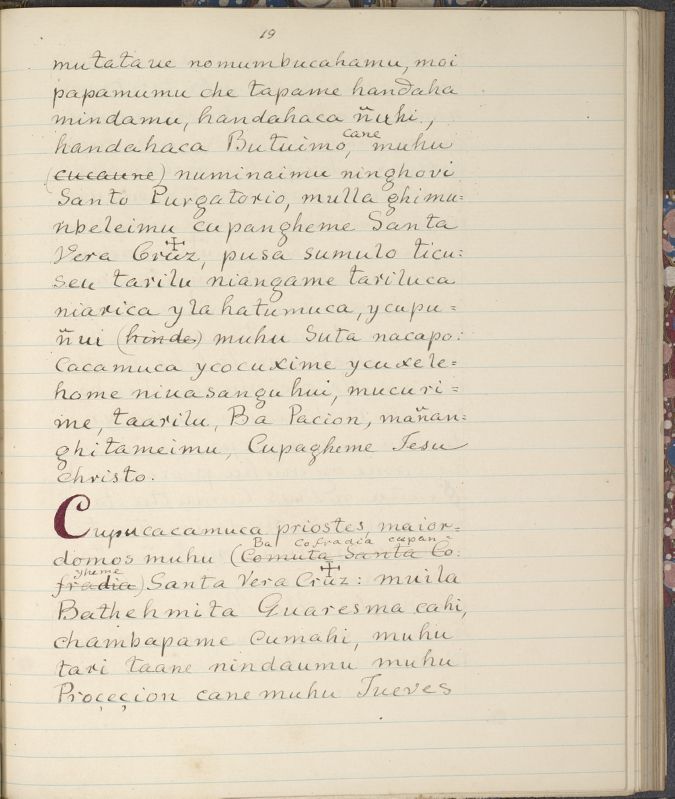 19
mutataue nomumbucahamu, moi
papamumu che tapame handaha
mindamu, handahaca ñuhi,
handahaca Butuimo, cane muhu
(cucaune) numinaimu ninghovi
Santo Purgatorio, mulla ghimu=
nbeleimu cupangheme Santa
Vera Cruz, pusa sumulo ticu=
seu tarilu niangame tariluca
niarica yla hatumuca, ycupu=
ñui (hinde) muhu Suta nacapo=
cacamuca ycocuxime ycuxele=
home niuasanguhui, mucuri=
me, taarilu, Ba Pacion, mañan=
ghitameimu, Cupagheme Jesu
christo.
Cupucacamuca priostes, maior=
domos muhu (Comuta Santa Co= Ba Cofradia cupan=
fradia) gheme Santa Vera Cruz: muila
Bathehmita Guaresma cahi,
chambapame cumahi, muhu
tari taane nindaumu muhu
Proçeçion cane muhu Jueves